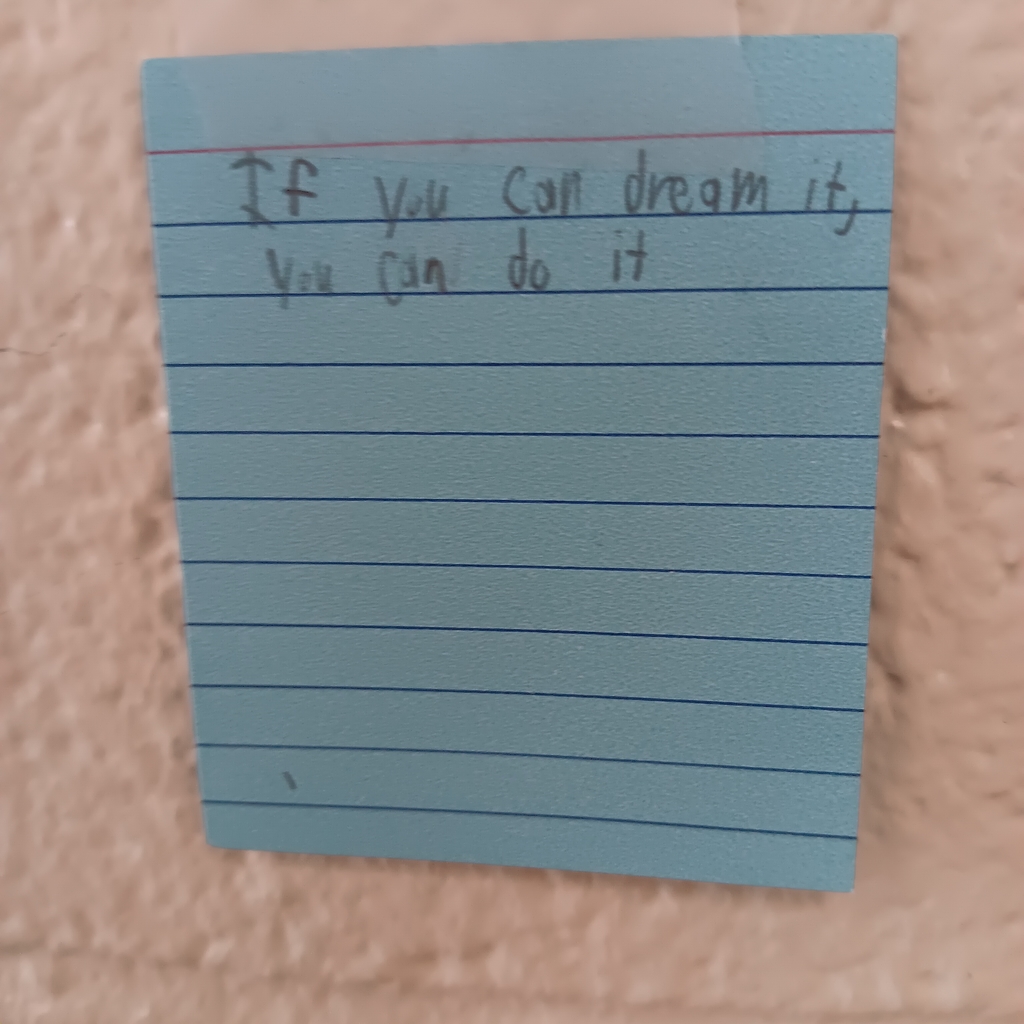 If you can dream it,
you can do it